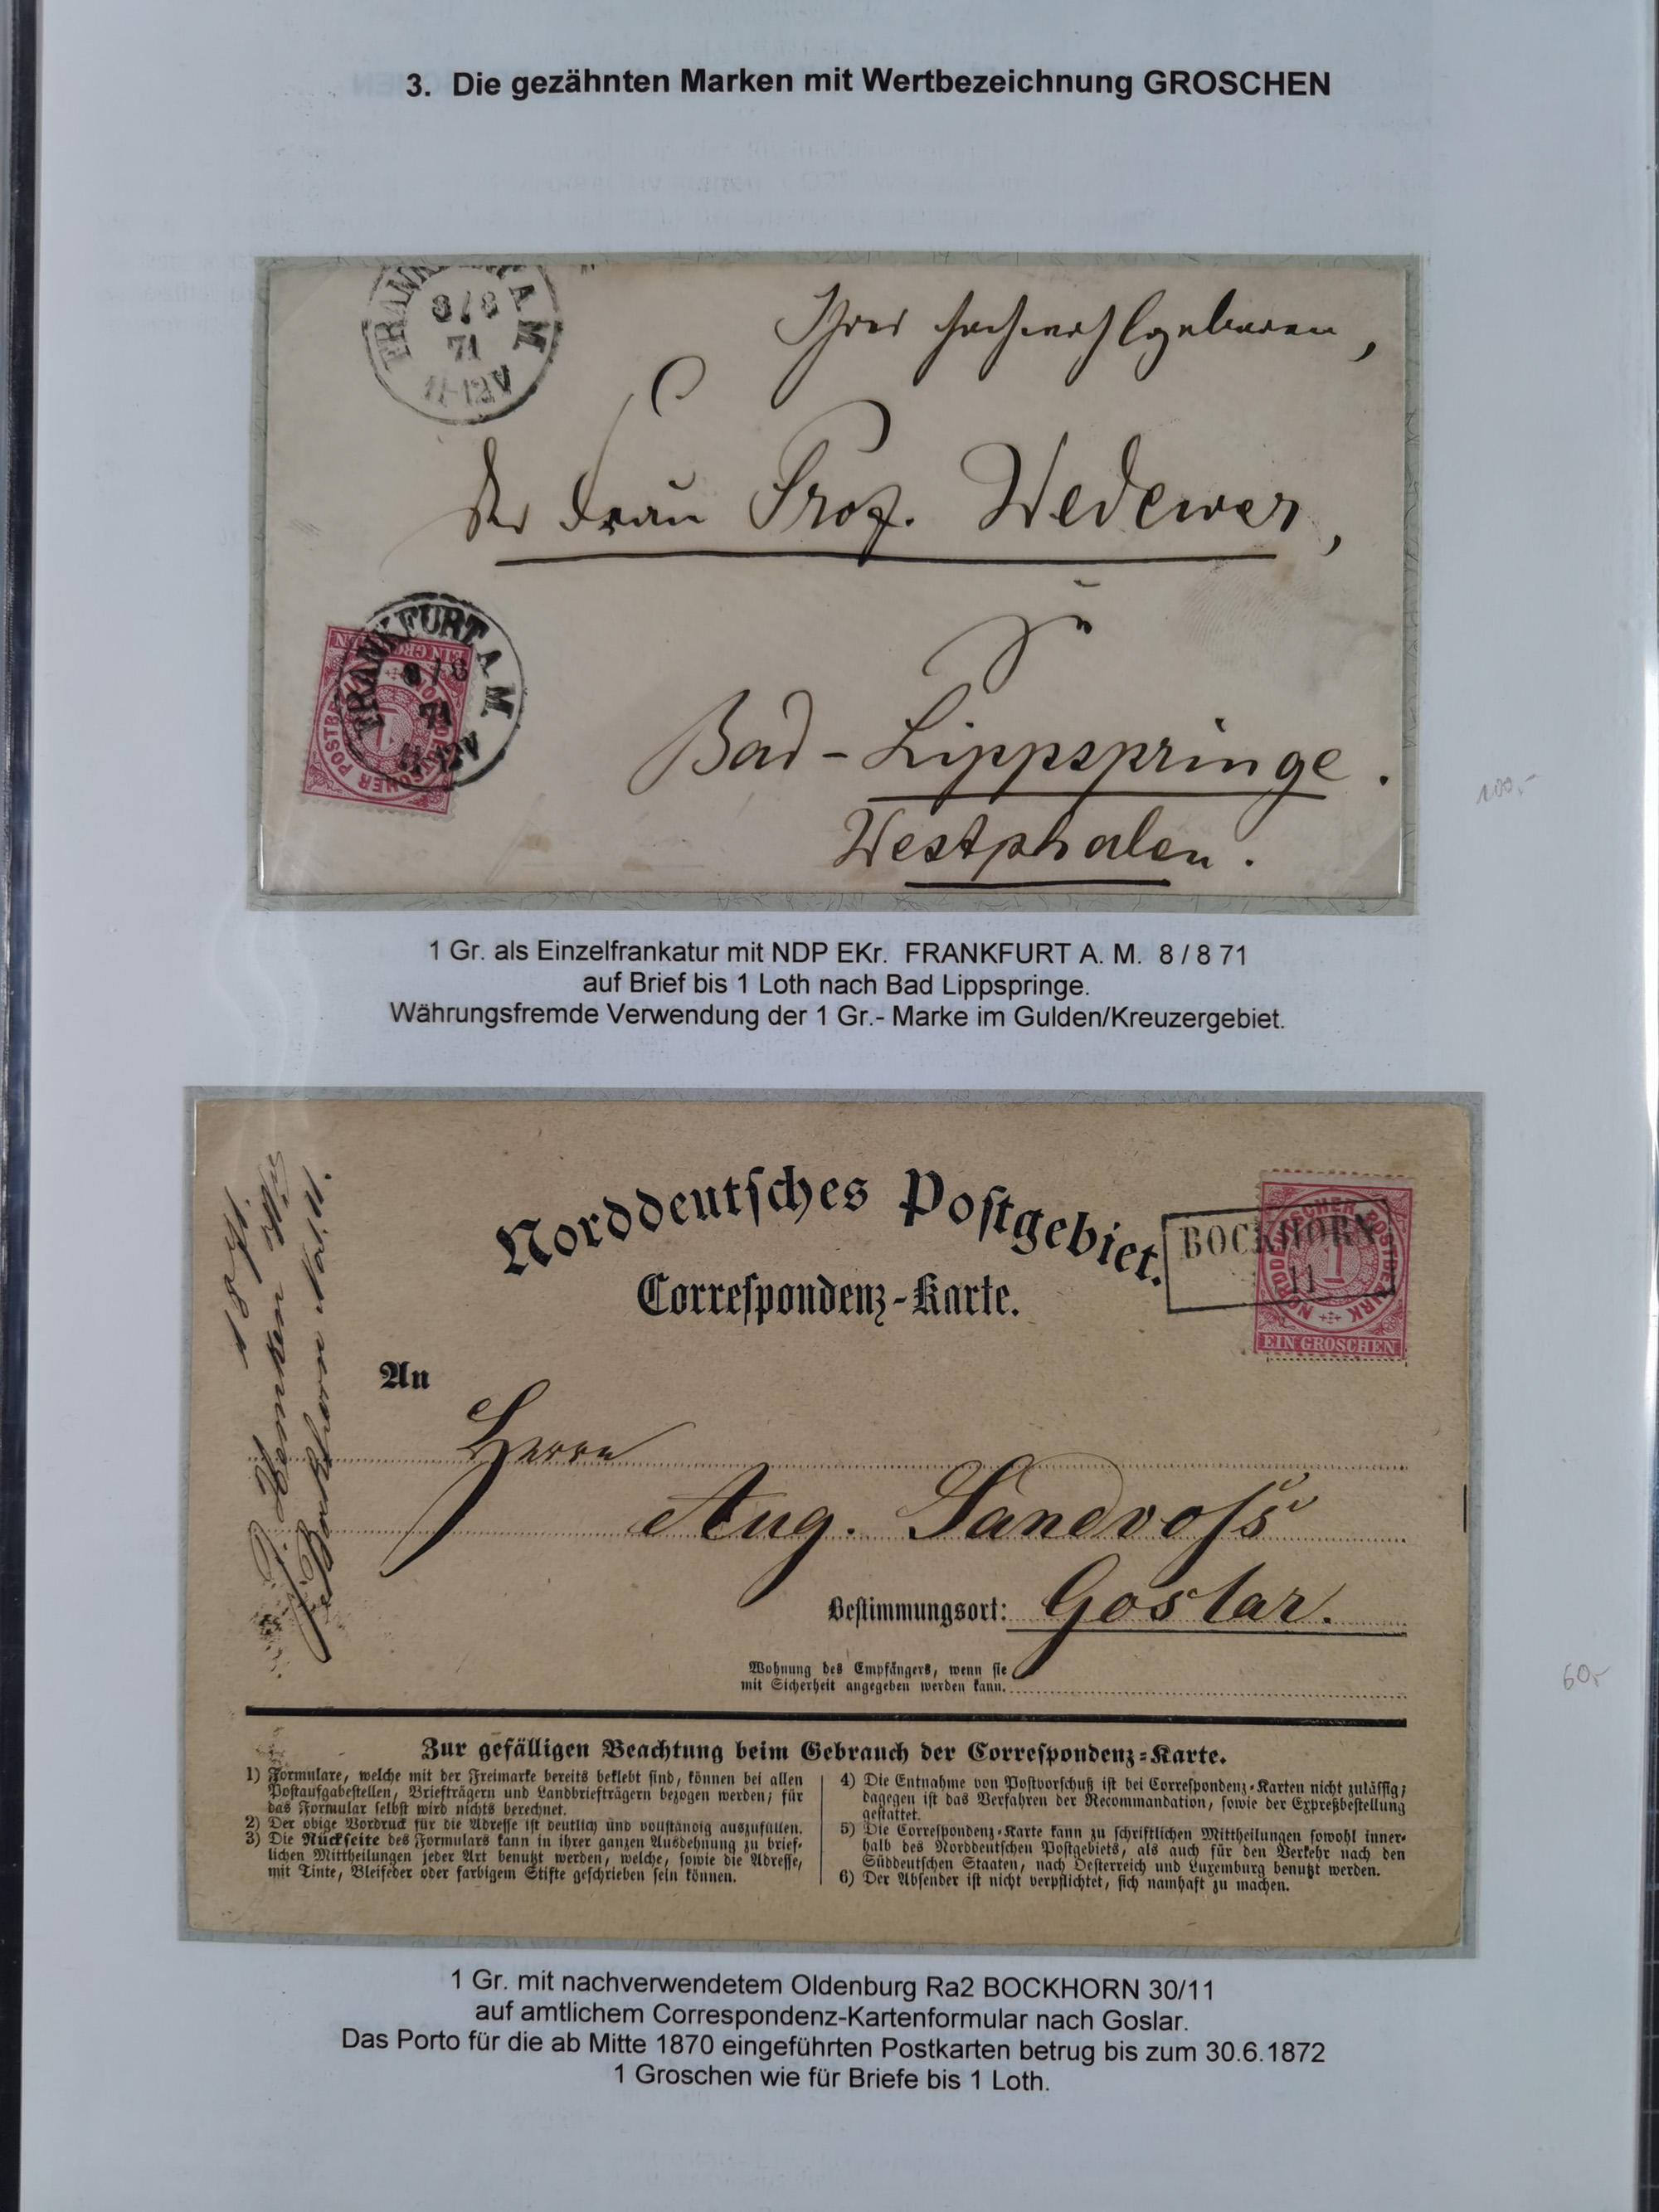 3. Die gezähnten Marken mit Wertbezeichnung GROSCHEN
A M
8/8
71
11-12V
der Frau Prof. Wedewer,
FRANKFURT A. M.
8/8
71
11-12V
EIN GROSCHEN
NORDDEUTSCHER POSTBEZIRK
1
zu
Bad-Lippspringe.
Westphalen.
100,-
1 Gr. als Einzelfrankatur mit NDP EKr. FRANKFURT A. M. 8 / 8 71
auf Brief bis 1 Loth nach Bad Lippspringe.
Währungsfremde Verwendung der 1 Gr.- Marke im Gulden/Kreuzergebiet.
Norddeutſches Poſtgebiet.
Correſpondenz-Karte.
BOCKHORN
11
NORDDEUTSCHER POSTBEZIRK
1
EIN GROSCHEN
An
Herrn
Aug. Sandvoſs
Beſtimmungsort: Goslar.
Wohnung des Empfängers, wenn ſie
mit Sicherheit angegeben werden kann.
60,-
Zur gefälligen Beachtung beim Gebrauch der Correſpondenz-Karte.
1) Formulare, welche mit der Freimarke bereits beklebt ſind, können bei allen
Poſtaufgabeſtellen, Briefträgern und Landbriefträgern bezogen werden; für
das Formular ſelbſt wird nichts berechnet.
2) Der obige Vordruck für die Adreſſe iſt deutlich und vollſtändig auszufüllen.
3) Die Rückſeite des Formulars kann in ihrer ganzen Ausdehnung zu brief-
lichen Mittheilungen jeder Art benutzt werden, welche, ſowie die Adreſſe,
mit Tinte, Bleifeder oder farbigem Stifte geſchrieben ſein können.
4) Die Entnahme von Poſtvorſchuß iſt bei Correſpondenz-Karten nicht zuläſſig;
dagegen iſt das Verfahren der Recommandation, ſowie der Expreßbeſtellung
geſtattet.
5) Die Correſpondenz-Karte kann zu ſchriftlichen Mittheilungen ſowohl inner-
halb des Norddeutſchen Poſtgebiets, als auch für den Verkehr nach den
Süddeutſchen Staaten, nach Oeſterreich und Luxemburg benutzt werden.
6) Der Abſender iſt nicht verpflichtet, ſich namhaft zu machen.
1 Gr. mit nachverwendetem Oldenburg Ra2 BOCKHORN 30/11
auf amtlichem Correspondenz-Kartenformular nach Goslar.
Das Porto für die ab Mitte 1870 eingeführten Postkarten betrug bis zum 30.6.1872
1 Groschen wie für Briefe bis 1 Loth.